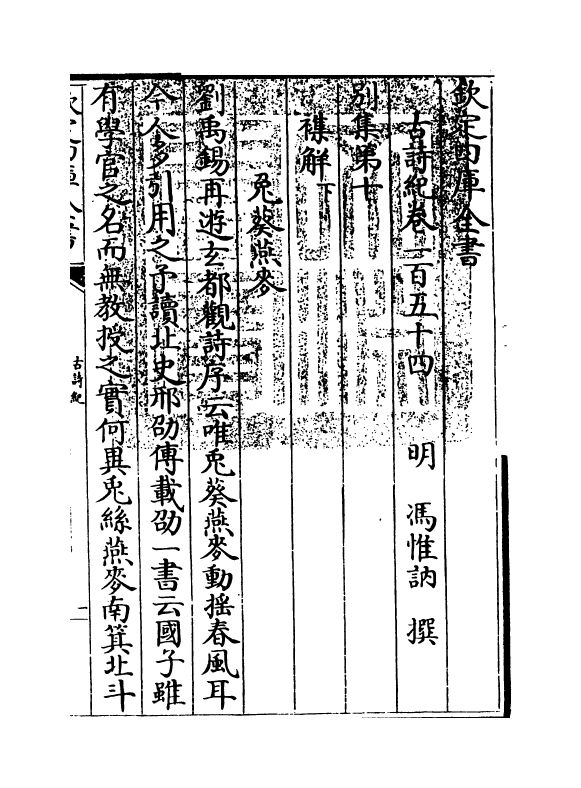 欽定四庫全書
古詩紀卷一百五十四　　明　馮惟訥　撰
別集第十
襍解下
兎葵燕麥
劉禹錫再遊玄都觀詩序云唯兎葵燕麥動揺春風耳
今人多引用之予讀北史邢劭傳載劭一書云國子雖
有學官之名而無教授之實何異兎絲燕麥南箕北斗
欽定四庫全書
古詩紀
一